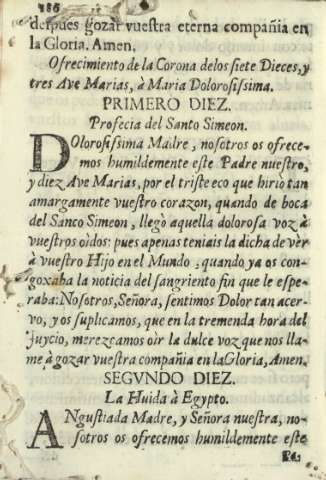 186
despues gozar vuestra eterna compañia en
la Gloria. Amen.
Ofrecimiento de la Corona delos siete Dieces, y
tres Ave Marias, à Maria Dolorosissima.
PRIMERO DIEZ.
Profecia del Santo Simeon.
DOlorosissima Madre, nosotros os ofrece-
mos humildemente este Padre nuestro,
y diez Ave Marias, por el triste eco que hiriò tan
amargamente vuestro corazon, quando de boca
del Sanco Simeon, llegò aquella dolorosa voz à
vuestros oìdos: pues apenas teniais la dicha de vèr
à vuestro Hijo en el Mundo, quando ya os con-
goxaba la noticia del sangriento fin que le espe-
raba: Nosotros, Señora, sentimos Dolor tan acer-
vo, y os suplicamos, que en la tremenda hora del
juycio, merezcamos oìr la dulce voz que nos lla-
me à gozar vuestra compañia en la Gloria, Amen.
SEGVNDO DIEZ.
La Huida à Egypto.
ANgustiada Madre, y Señora nuestra, no-
sotros os ofrecemos humildemente este